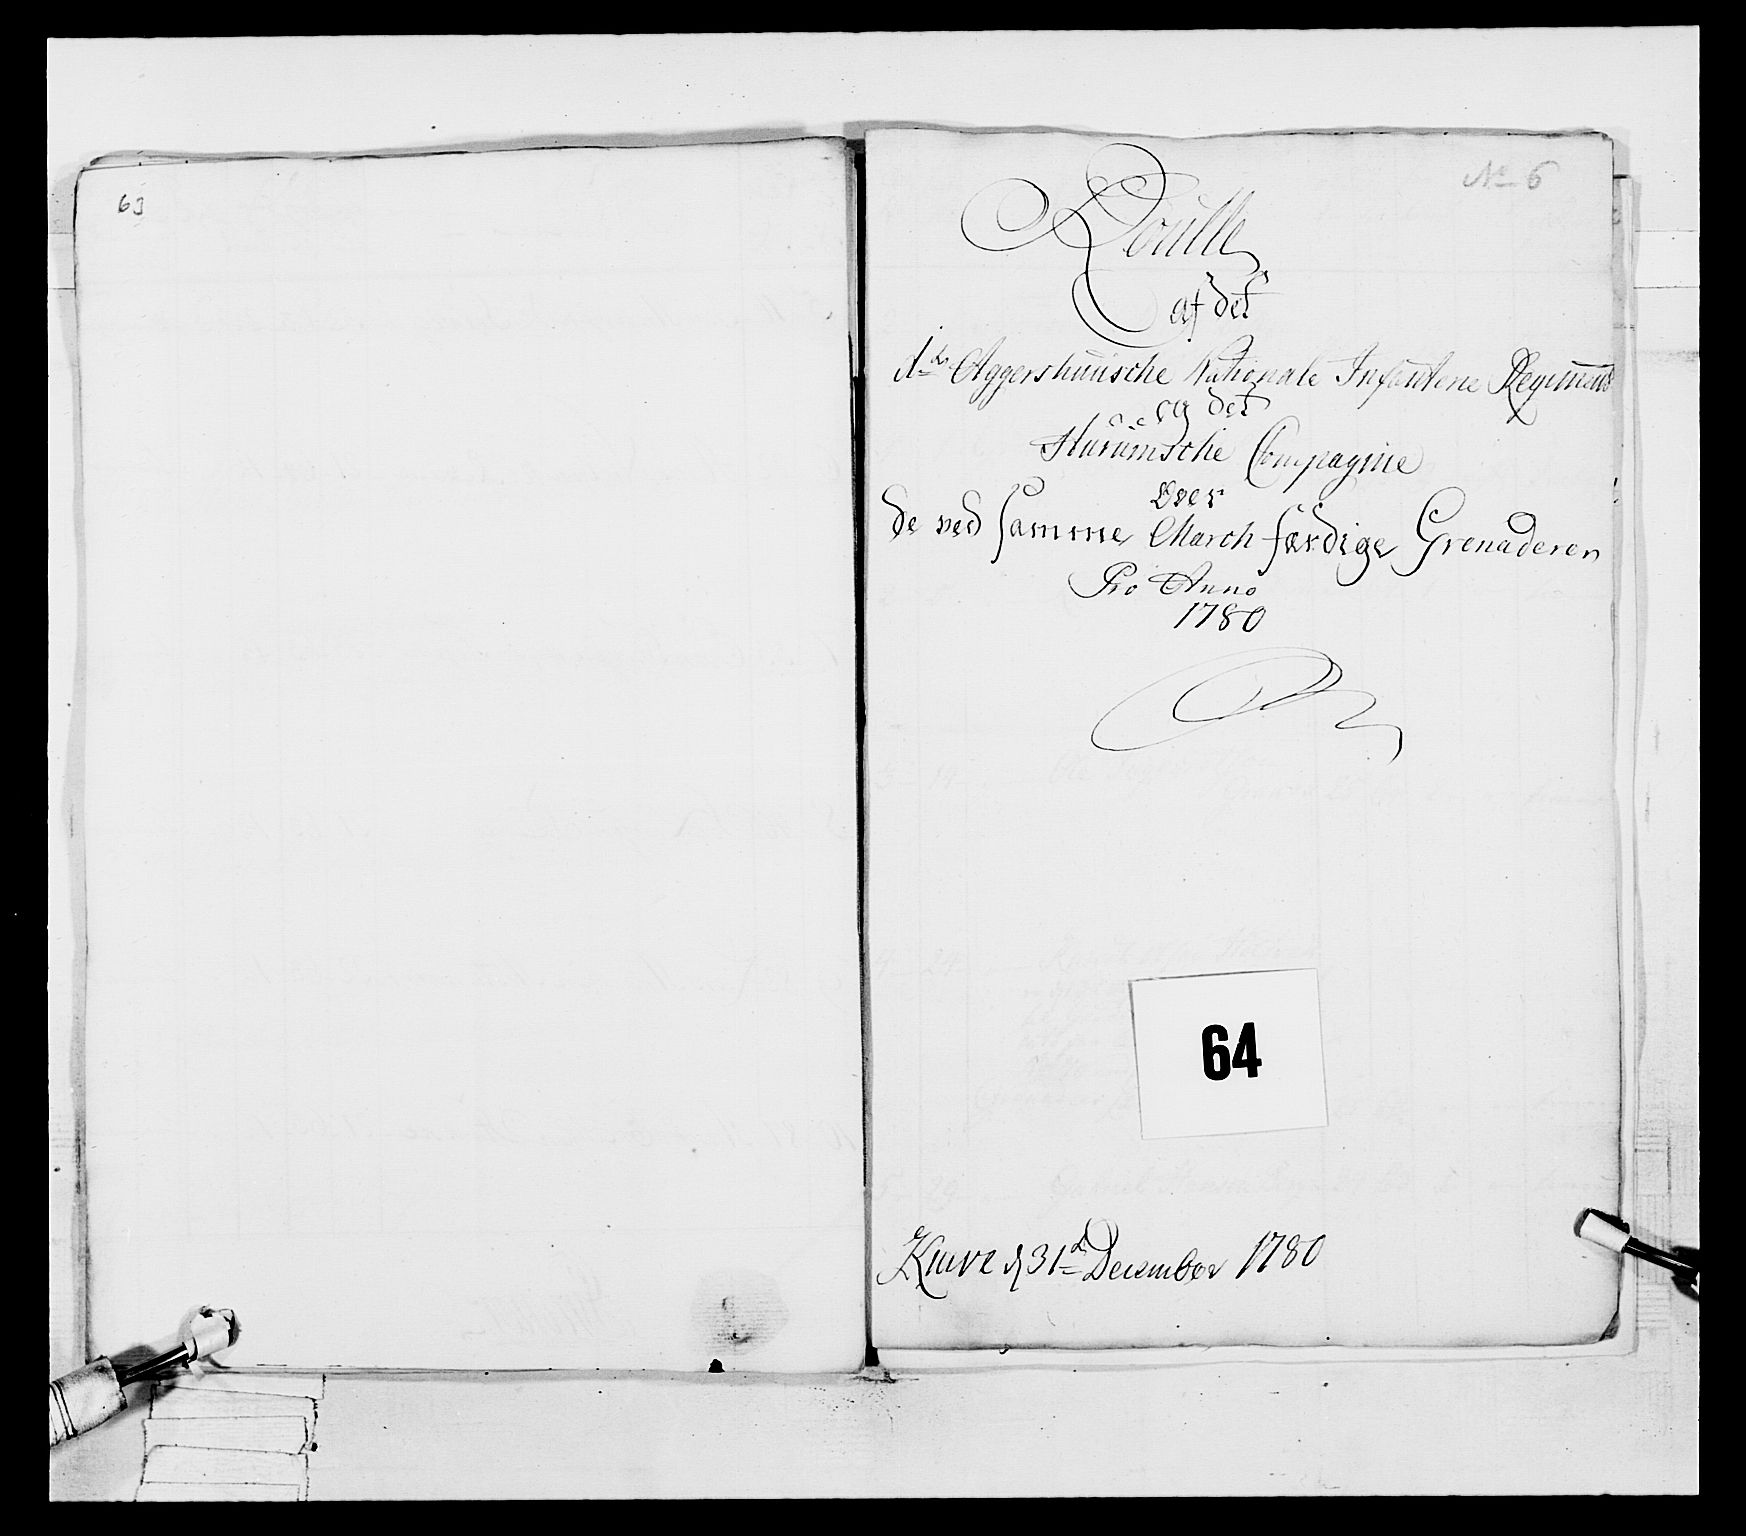 63
No 6
Roulle
af det
1de Aggershuusche Nationale Infanterie Regiment
og det
Hurumsche Compagnie
Over
de ved samme March færdige Grenaderer
Pro Anno
1780
64
d 31te December 1780